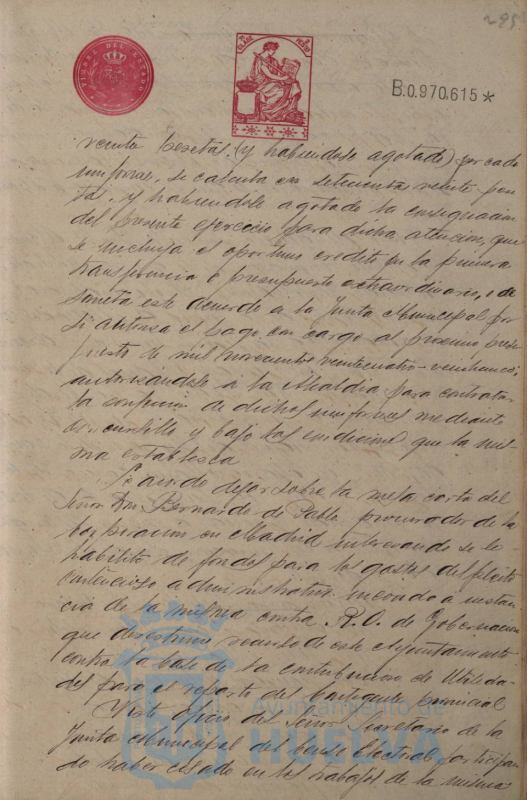 295
TIMBRE DEL ESTADO
CLASE
B.0.970.615*
veinte pesetas (y habiendose agotado) por cada
uniforme, se calcula en setecientas veinte pese
tas, y habiendole agotado la consignacion
del presente ejercicio para dicha atencion, que
se incluya el oportuno credito en la primera
transferencia o presupuesto extraordinario, o se
someta este acuerdo a la Junta Municipal por
si autoriza el pago con cargo al proximo presu
puesto de mil novecientos veinticuatro-veinticinco;
autorizandole a la Alcaldia para contratar
la confeccion de dichos uniformes mediante
concursillo y bajo las condiciones que la mis
ma establezca
Se acordo dejar sobre la mesa carta del
Señor Don Bernardo de Pablo procurador de la
Corporacion en Madrid interesando se le
habilite de fondos para los gastos del pleito
contencioso administrativo incoado a instan
cia de la misma contra R.O. de Gobernacion
que desestimo recurso de este Ayuntamiento
contra la base de la contribucion de Utilida
des para el reparto del Contingente provincial
Visto oficio del Señor Secretario de la
Junta Municipal del Censo Electoral participan
do haber cesado en los trabajos de la misma
Ayuntamiento de
HUELVA